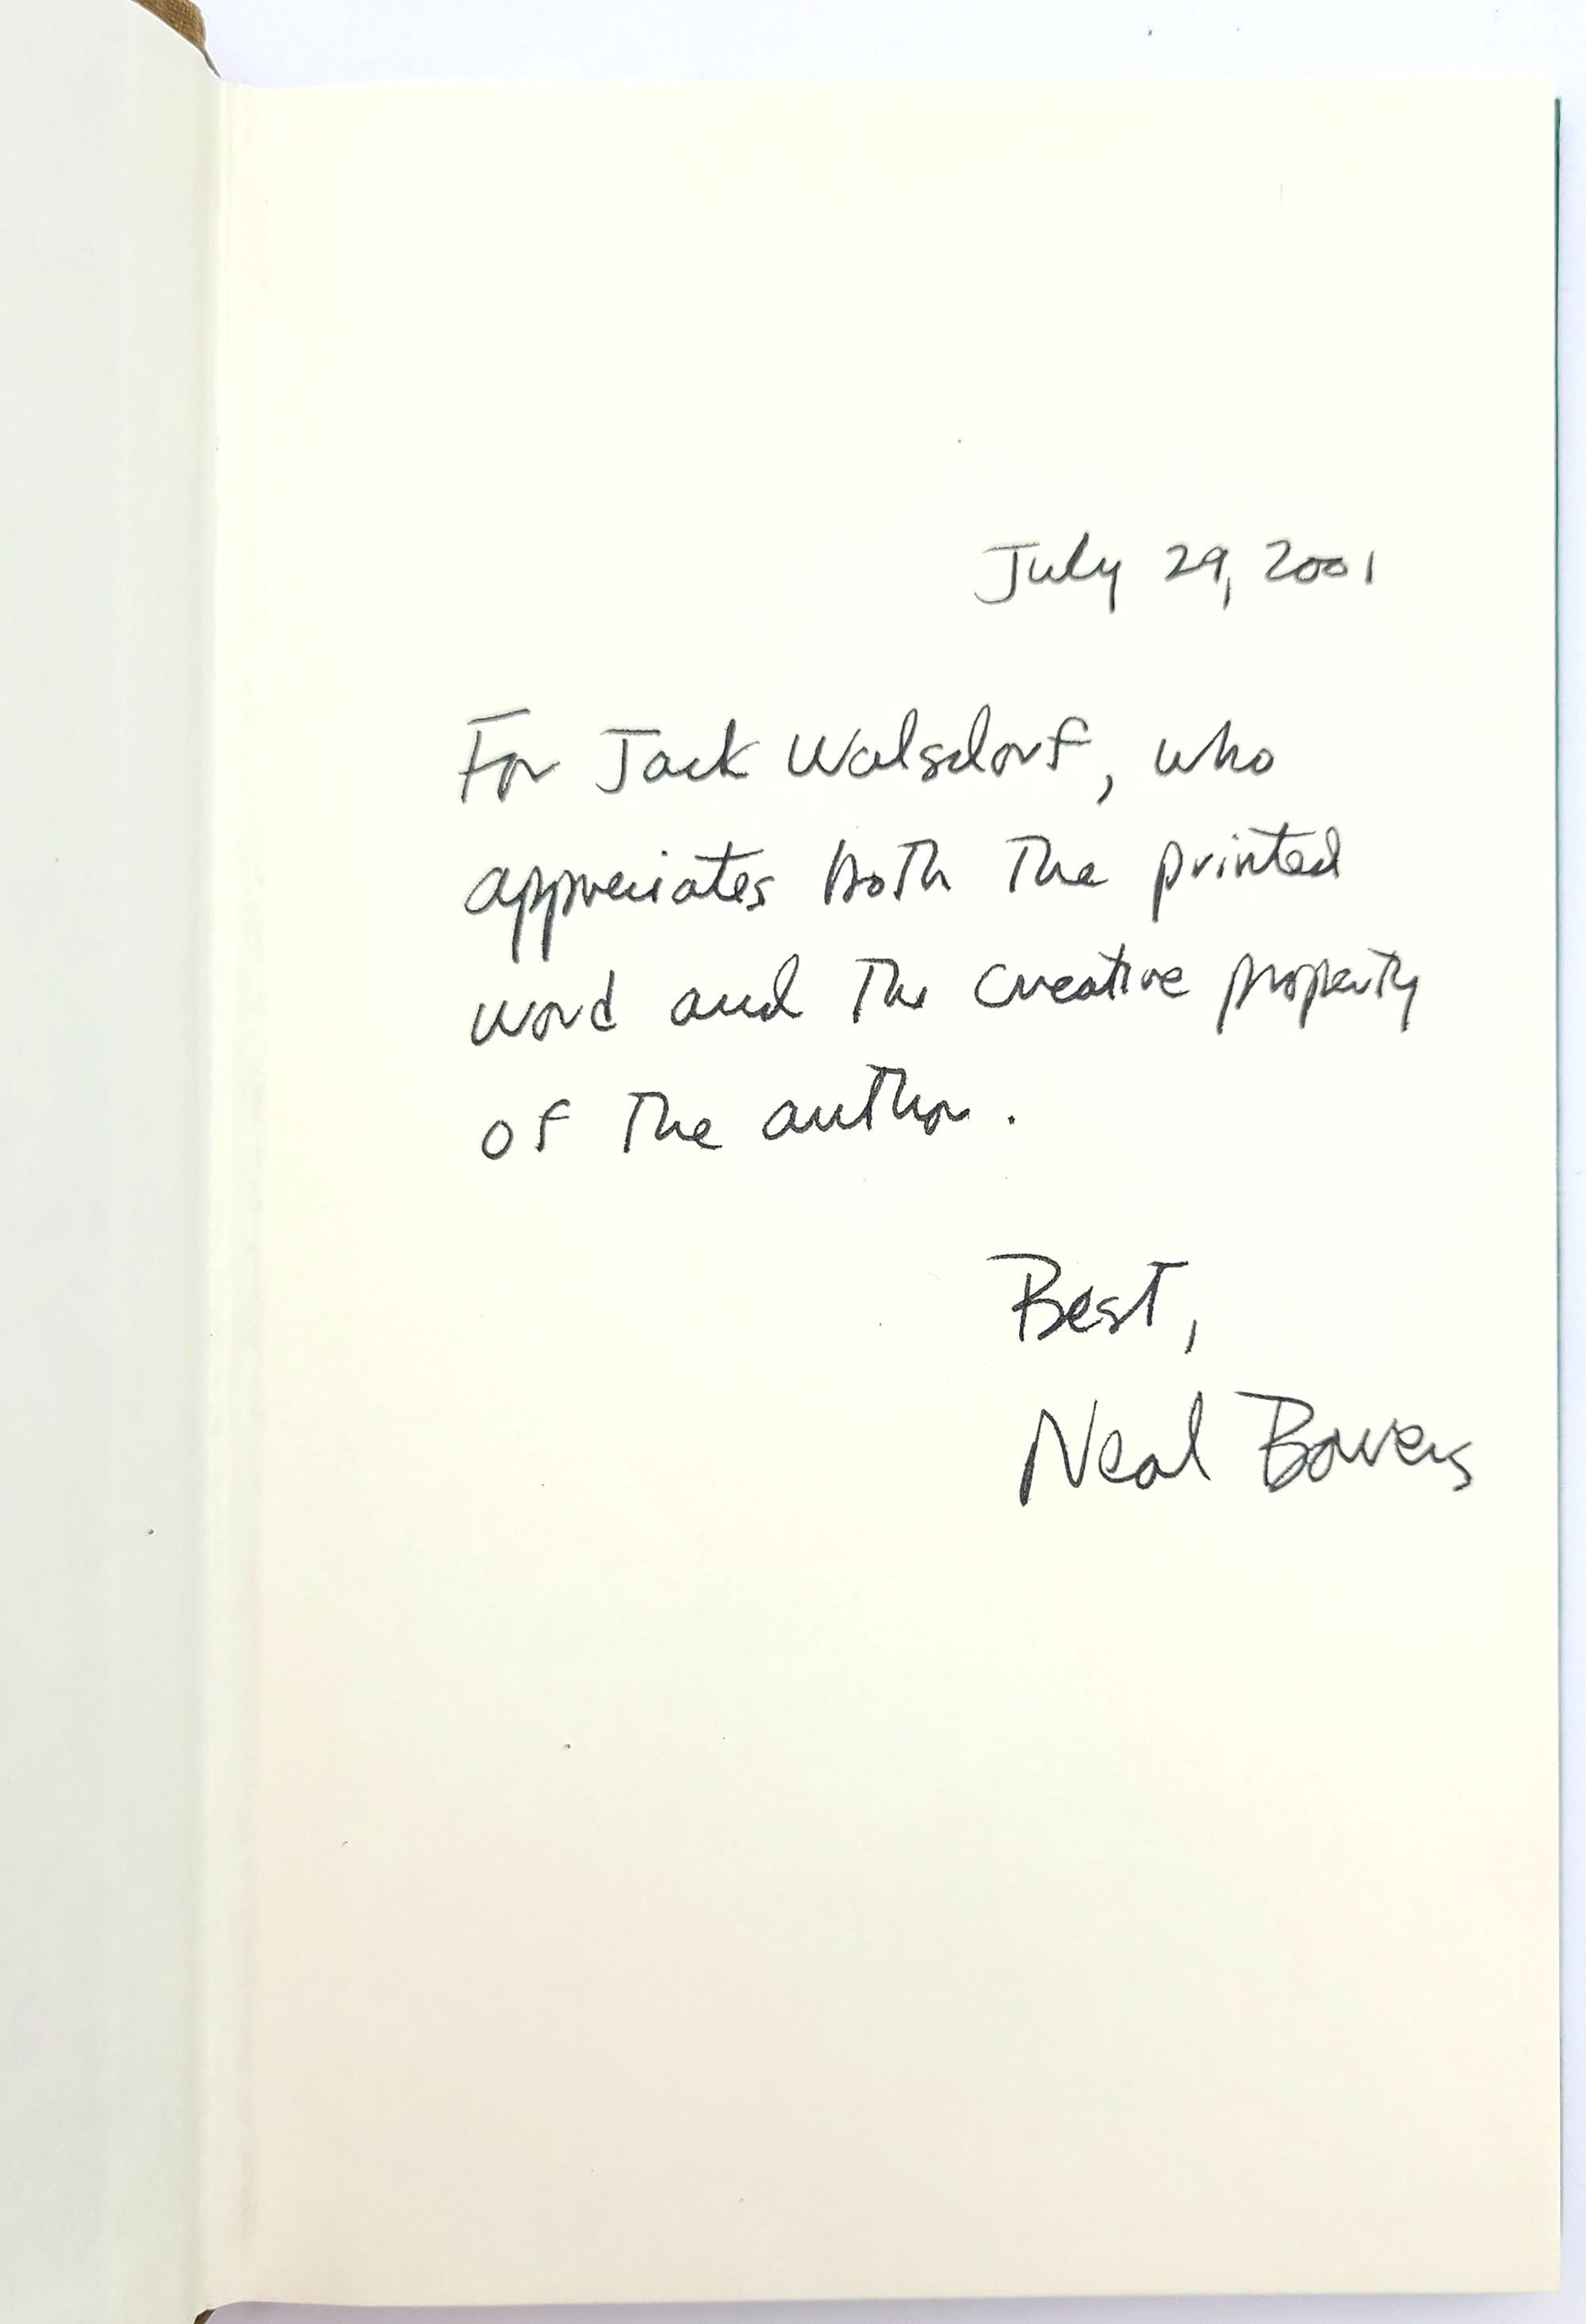 July 29, 2001
For Jack Walsdorf, who
appreciates both the printed
word and the creative property
of the author.
Best,
Neal Bowers